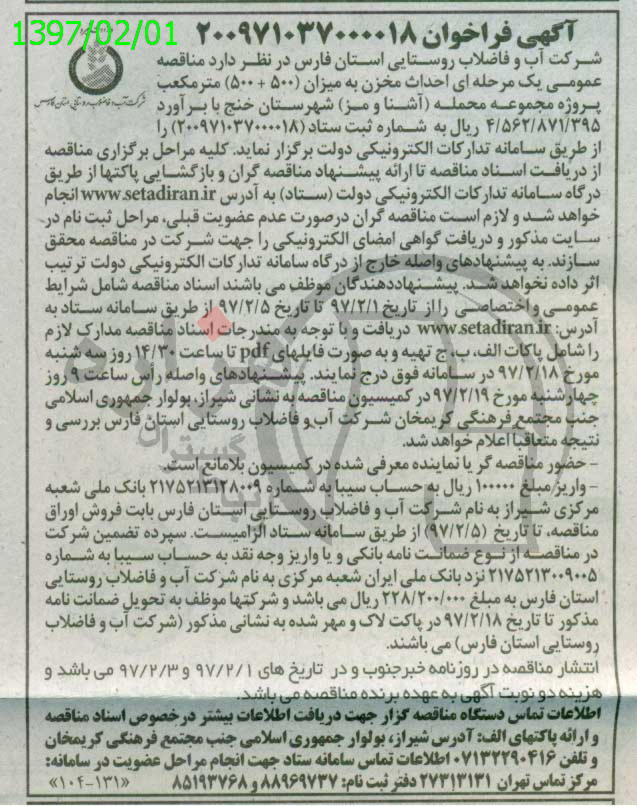 1397/02/01
آگهی فراخوان ۲۰۰۹۷۱۰۳۷۰۰۰۰۱۸
شرکت آب و فاضلاب روستایی استان فارس
شرکت آب و فاضلاب روستایی استان فارس در نظر دارد مناقصه
عمومی یک مرحله ای احداث مخزن به میزان (۵۰۰ + ۵۰۰) مترمکعب
پروژه مجموعه محمله (آشنا و مز) شهرستان خنج با برآورد
۴/۵۶۲/۸۷۱/۳۹۵ ریال به شماره ثبت ستاد (۲۰۰۹۷۱۰۳۷۰۰۰۰۱۸) را
از طریق سامانه تدارکات الکترونیکی دولت برگزار نماید. کلیه مراحل برگزاری مناقصه
از دریافت اسناد مناقصه تا ارائه پیشنهاد مناقصه گران و بازگشایی پاکتها از طریق
درگاه سامانه تدارکات الکترونیکی دولت (ستاد) به آدرس www.setadiran.ir انجام
خواهد شد و لازم است مناقصه گران درصورت عدم عضویت قبلی، مراحل ثبت نام در
سایت مذکور و دریافت گواهی امضای الکترونیکی را جهت شرکت در مناقصه محقق
سازند. به پیشنهادهای واصله خارج از درگاه سامانه تدارکات الکترونیکی دولت ترتیب
اثر داده نخواهد شد. پیشنهاددهندگان موظف می باشند اسناد مناقصه شامل شرایط
عمومی و اختصاصی را از تاریخ ۹۷/۲/۱ تا تاریخ ۹۷/۲/۵ از طریق سامانه ستاد به
آدرس: www.setadiran.ir دریافت و با توجه به مندرجات اسناد مناقصه مدارک لازم
را شامل پاکات الف، ب، ج تهیه و به صورت فایلهای pdf تا ساعت ۱۴/۳۰ روز سه شنبه
مورخ ۹۷/۲/۱۸ در سامانه فوق درج نمایند. پیشنهادهای واصله رأس ساعت ۹ روز
چهارشنبه مورخ ۹۷/۲/۱۹ در کمیسیون مناقصه به نشانی شیراز، بولوار جمهوری اسلامی
جنب مجتمع فرهنگی کریمخان شرکت آب و فاضلاب روستایی استان فارس بررسی و
نتیجه متعاقباً اعلام خواهد شد.
- حضور مناقصه گر یا نماینده معرفی شده در کمیسیون بلامانع است.
- واریز مبلغ ۱۰۰۰۰۰ ریال به حساب سیبا به شماره ۲۱۷۵۲۱۳۱۲۸۰۰۹ بانک ملی شعبه
مرکزی شیراز به نام شرکت آب و فاضلاب روستایی استان فارس بابت فروش اوراق
مناقصه، تا تاریخ (۹۷/۲/۵) از طریق سامانه ستاد الزامیست. سپرده تضمین شرکت
در مناقصه از نوع ضمانت نامه بانکی و یا واریز وجه نقد به حساب سیبا به شماره
۲۱۷۵۲۱۳۰۰۹۰۰۵ نزد بانک ملی ایران شعبه مرکزی به نام شرکت آب و فاضلاب روستایی
استان فارس به مبلغ ۲۲۸/۲۰۰/۰۰۰ ریال می باشد و شرکتها موظف به تحویل ضمانت نامه
مذکور تا تاریخ ۹۷/۲/۱۸ در پاکت لاک و مهر شده به نشانی مذکور (شرکت آب و فاضلاب
روستایی استان فارس) می باشند.
انتشار مناقصه در روزنامه خبرجنوب و در تاریخ های ۹۷/۲/۱ و ۹۷/۲/۳ می باشد و
هزینه دو نوبت آگهی به عهده برنده مناقصه می باشد.
اطلاعات تماس دستگاه مناقصه گزار جهت دریافت اطلاعات بیشتر درخصوص اسناد مناقصه
و ارائه پاکتهای الف: آدرس شیراز، بولوار جمهوری اسلامی جنب مجتمع فرهنگی کریمخان
و تلفن ۰۷۱۳۲۲۹۰۴۱۶ اطلاعات تماس سامانه ستاد جهت انجام مراحل عضویت در سامانه:
مرکز تماس تهران ۲۷۳۱۳۱۳۱ دفتر ثبت نام: ۸۸۹۶۹۷۳۷ و ۸۵۱۹۳۷۶۸ «۱۰۴-۱۳۱»